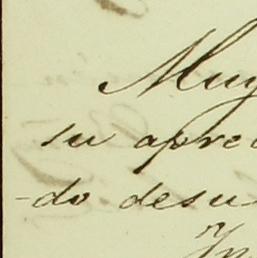 Muy
su apre
-do desu